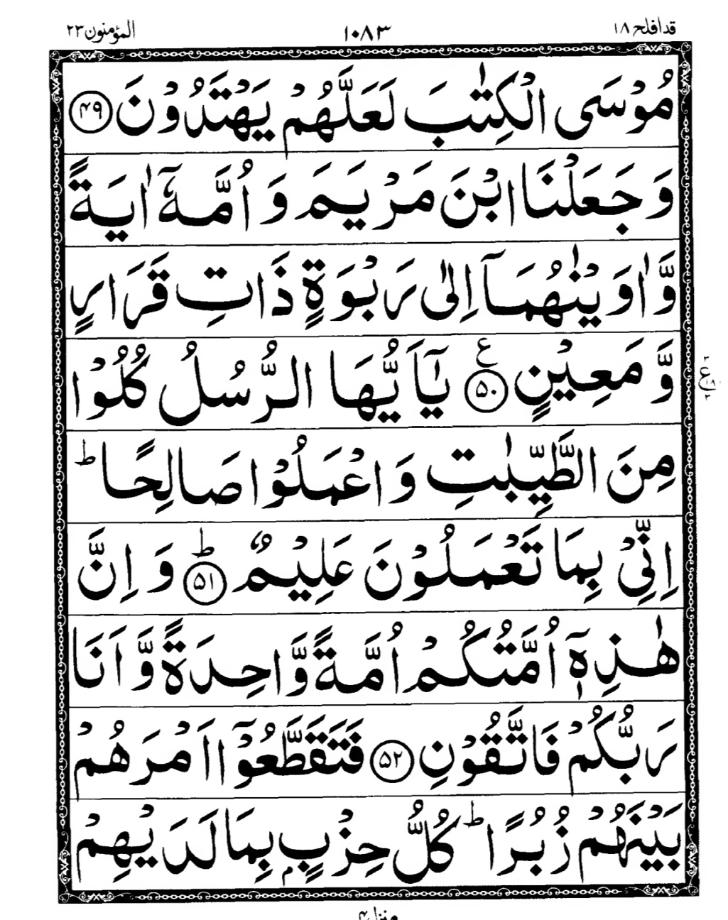 قد افلح ١٨ ١٠٨٣ المؤمنون ٢٣
مُوْسَى الْكِتٰبَ لَعَلَّهُمْ يَهْتَدُوْنَ ﴿۴۹﴾
وَ جَعَلْنَا ابْنَ مَرْيَمَ وَ اُمَّهٗۤ اٰيَةً
وَّاٰوَيْنٰهُمَاۤ اِلٰى رَبْوَةٍ ذَاتِ قَرَارٍ
وَّ مَعِيْنٍ ﴿۵۰﴾ ع يٰۤاَيُّهَا الرُّسُلُ كُلُوْا
مِنَ الطَّيِّبٰتِ وَ اعْمَلُوْا صَالِحًا ؕ
اِنِّيْ بِمَا تَعْمَلُوْنَ عَلِيْمٌ ﴿۵۱﴾ ؕ وَ اِنَّ
هٰذِهٖۤ اُمَّتُكُمْ اُمَّةً وَّاحِدَةً وَّ اَنَا
رَبُّكُمْ فَاتَّقُوْنِ ﴿۵۲﴾ فَتَقَطَّعُوْۤا اَمْرَهُمْ
بَيْنَهُمْ زُبُرًا ؕ كُلُّ حِزْبٍۭ بِمَا لَدَيْهِمْ
منزل ۴